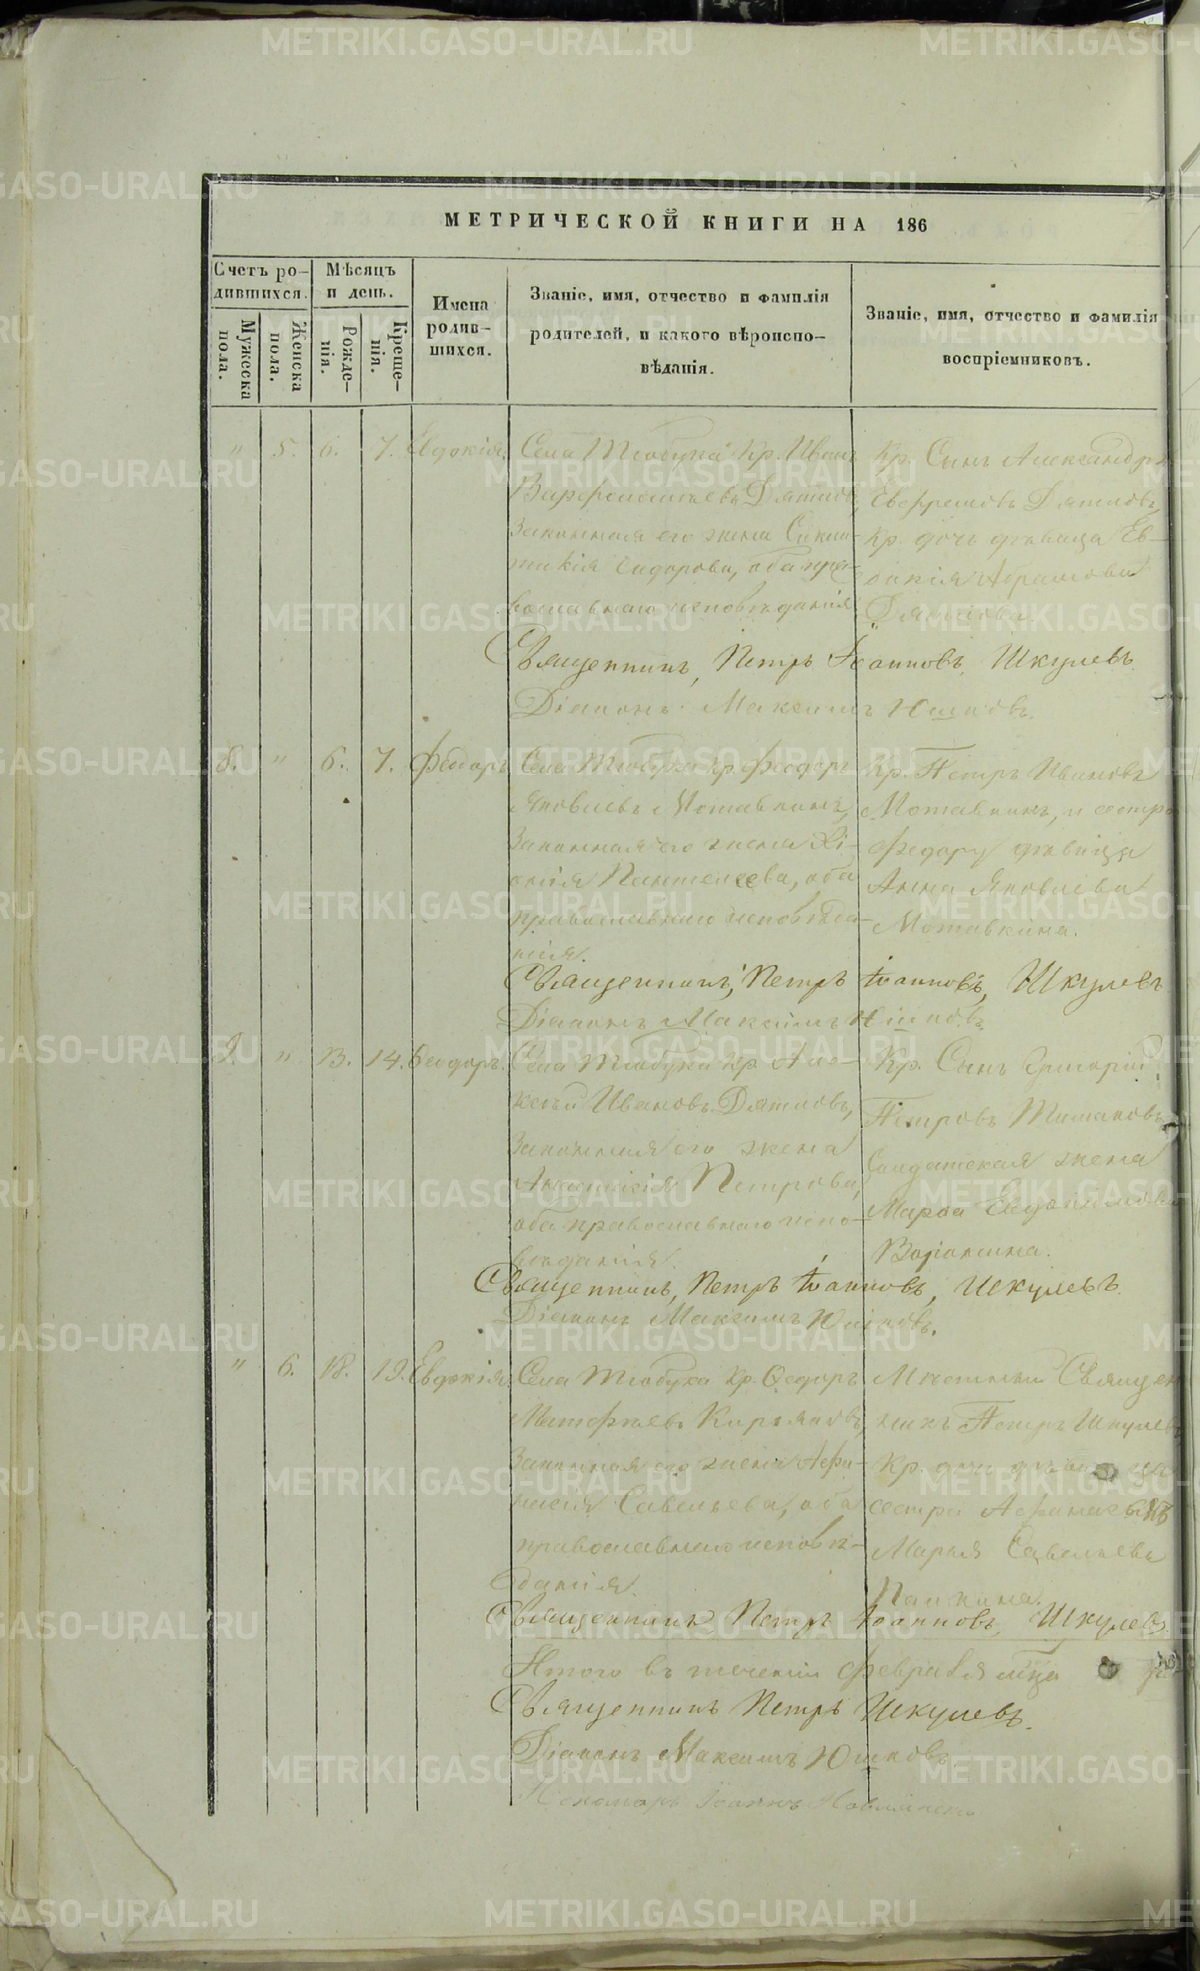 МЕТРИЧЕСКОЙ КНИГИ НА 186
Счетъ ро-
дившихся.
Мѣсяцъ
и день.
Имена
родив-
шихся.
Званіе, имя, отчество и фамилія
родителей, и какого вѣроиспо-
вѣданія.
Званіе, имя, отчество и фамилія
воспріемниковъ.
Мужеска
пола.
Женска
пола.
Рожде-
нія.
Креще-
нія.
" 5. 6. 7. Евдокія
Села Тюбука Кр. Иванъ
Дятловъ,
законная его жена
Сидорова, оба пра-
вославнаго исповѣданія
Кр. Сынъ Александръ
Дятловъ,
кр. дочь дѣвица Ев-
докія Абрамова
Дятлова.
Священникъ, Петръ Іоанновъ, Шкулевъ.
Діаконъ Максимъ Юшковъ.
8. " 6. 7. Феодоръ
Села Тюбука кр. Феодоръ
Яковлевъ Мотавкинъ,
законная его жена
Пантелеева, оба
православнаго исповѣда-
нія.
Кр. Петръ Ивановъ
Мотавкинъ, и сестра
Федору дѣвица
Анна Яковлева
Мотавкина.
Священникъ, Петръ Іоанновъ, Шкулевъ
Діаконъ Максимъ Юшковъ
9. " 13. 14. Феодоръ.
Села Тюбука кр. Але-
ксѣй Ивановъ Дятловъ,
законная его жена
Анастасія Петрова,
оба православнаго испо-
вѣданія.
Кр. Сынъ Григорій
Петровъ
Солдатская жена
Марѳа Евдокимова
Священникъ, Петръ Іоанновъ, Шкулевъ
Діаконъ Максимъ Юшковъ.
" 6. 18. 19. Евдокія
Села Тюбука Кр. Ѳедоръ
Матфѣевъ Кирьяновъ,
законная его жена Афа-
насія Савельева, оба
православнаго исповѣ-
данія.
Мѣстный Священ-
никъ Петръ Шкулевъ
Кр. дочь дѣвица
сестра
Марья Савельева
Священникъ Петръ Іоанновъ, Шкулевъ.
Итого въ теченіи Февраля мца
Священникъ Петръ Шкулевъ.
Діаконъ Максимъ Юшковъ
Пономарь Іоаннъ
METRIKI.GASO-URAL.RU